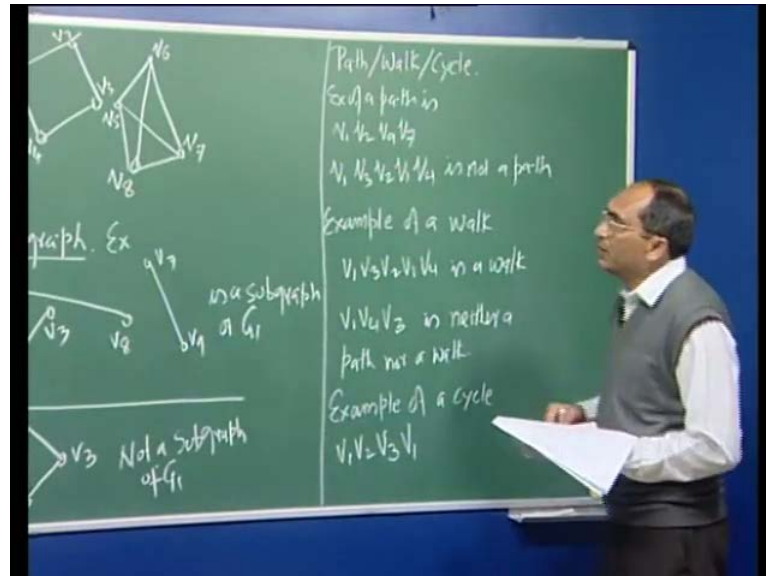 V5
V6
V5
V7
V8
graph. Ex
V7
V3
V8
V9
is a subgraph
of G1
V3
Not a Subgraph
of G1
Path/Walk/Cycle.
Ex of a path is
V1 V2 V9 V7
V1 V3 V2 V1 V4 is not a path
Example of a walk
V1 V3 V2 V1 V4 is a walk
V1 V4 V3 is neither a
path nor a walk
Example of a cycle
V1 V2 V3 V1